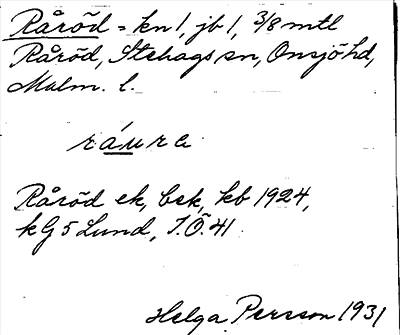 Råröd = kn 1, jb 1, 3/8 mtl
Råröd, Stehags sn, Onsjö hd,
Malm. l.
ráura
Råröd ek, bsk, kb 1924,
kG5 Lund, I.Ö.41.
Helga Persson 1931